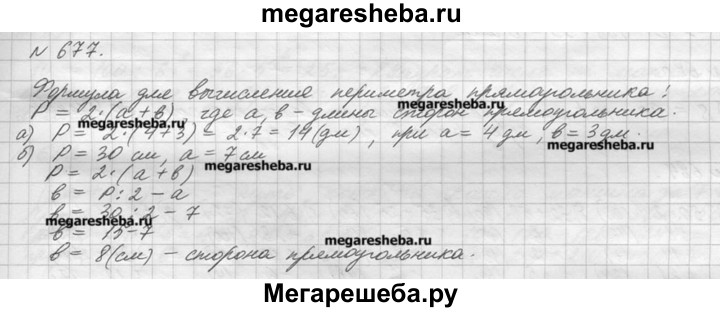 megaresheba.ru
№ 677.
Формула для вычисление периметра прямоугольника:
P = 2·(a+в), где a, в – длины сторон прямоугольника.
megaresheba.ru
а) P = 2·(4+3) = 2·7 = 14 (дм), при a = 4 дм, в = 3 дм.
megaresheba.ru
б) P = 30 см, a = 7 см
megaresheba.ru
P = 2·(a+в)
в = P:2 – a
в = 30:2 – 7
megaresheba.ru
в = 15–7
megaresheba.ru
в = 8 (см) – сторона прямоугольника.
Мегарешеба.ру